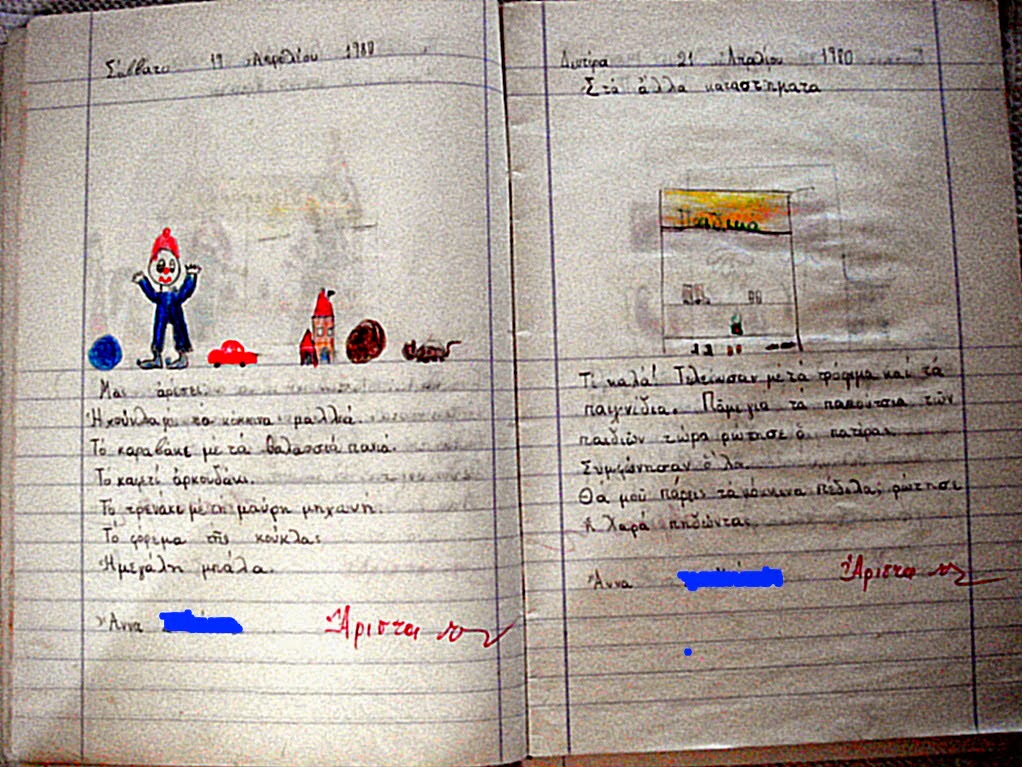 Σάββατο 19 Ἀπριλίου 1980
Μας ἀρέσει.
Ἡ κούκλα μέ τα κόκκινα μαλλιά.
Τό καραβάκι μέ τά θαλασσιά πανιά.
Το καφετί ἀρκουδάκι.
Το τρενάκι μέ τή μαύρη μηχανή.
Τό φόρεμα τῆς κούκλας
Ἡ μεγάλη μπάλα.
Ἄννα
Ἄριστα 10
Δευτέρα 21 Ἀπριλίου 1980
Στά ἄλλα καταστήματα
Παιδικα
Τί καλά! Τελείωσαν μέ τά φόρεμα καί τά
παιχνίδια. Πᾶμε για τά παπούτσια τῶν
παιδιῶν τώρα ρώτησε ὁ πατέρας
Συμφώνησαν ὅλα.
Θά μοῦ πάρεις τά κόκκινα πέδιλα; ρώτησε
ἡ Χαρά πηδώντας
Ἄννα
Ἄριστα 10